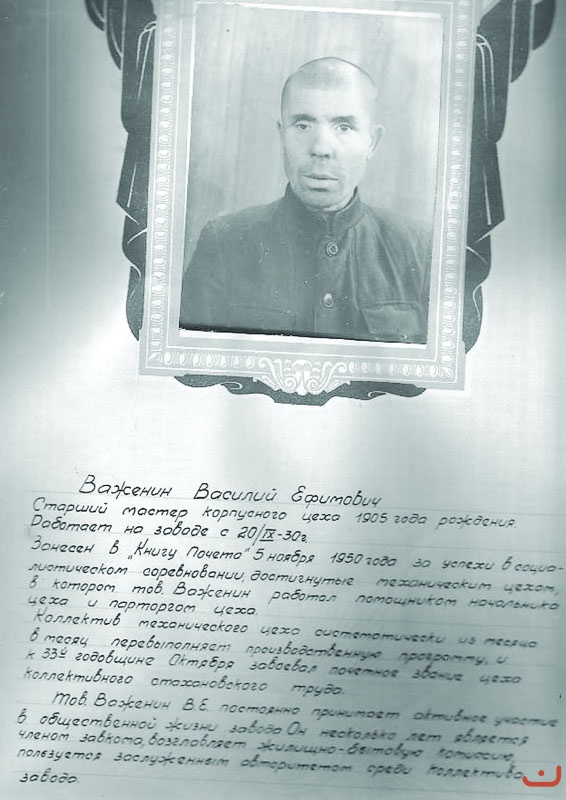 Важенин Василий Ефимович
Старший мастер корпусного цеха 1905 года рождения.
Работает на заводе с 20/IX-30г.
Занесен в „Книгу Почета" 5 ноября 1950 года за успехи в социа-
листическом соревновании, достигнутые механическим цехом,
в котором тов. Важенин работал помощником начальника
цеха и парторгом цеха.
Коллектив механического цеха систематически из месяца
в месяц перевыполняет производственную программу, и
к 33й годовщине Октября завоевал почетное звание цеха
коллективного стахановского труда.
Тов. Важенин В.Е. постоянно принимает активное участие
в общественной жизни завода. Он несколько лет является
членом завкома, возглавляет жилищно-бытовую комиссию,
пользуется заслуженным авторитетом среди коллектива
завода.